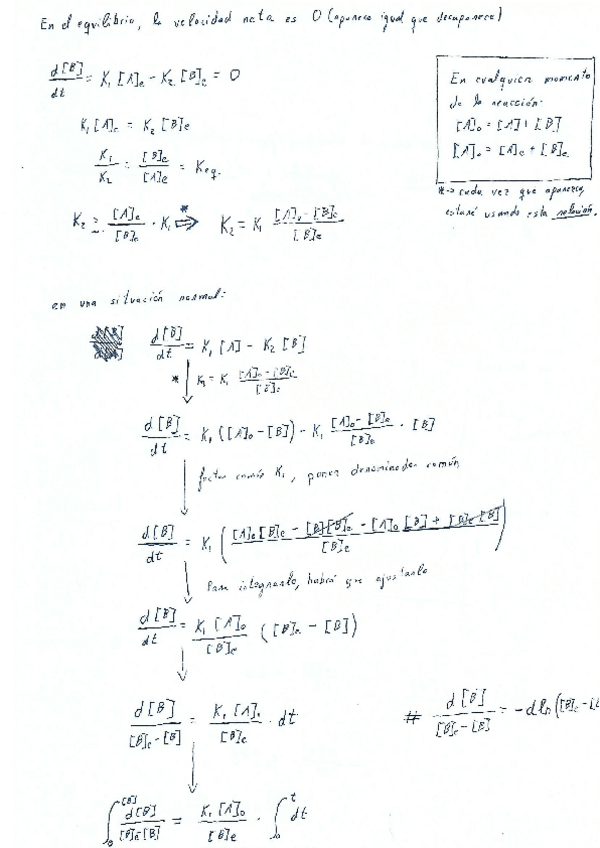 En el equilibrio, la velocidad neta es 0 (aparece igual que desaparece)
d[B]/dt = K₁ [A]e - K₂ [B]e = 0
K₁ [A]e = K₂ [B]e
K₁/K₂ = [B]e/[A]e = Keq.
K₂ = [A]e/[B]e · K₁ ⇒* K₂ = K₁ [A]₀ - [B]e/[B]e
En cualquier momento
de la reacción:
[A]₀ = [A] + [B]
[A]₀ = [A]e + [B]e
*→ cada vez que aparezca,
estaré usando esta relación.
en una situación normal:
d[B]/dt = K₁ [A] - K₂ [B]
* K₂ = K₁ [A]₀ - [B]e/[B]e
d[B]/dt = K₁ ([A]₀ - [B]) - K₁ [A]₀ - [B]e/[B]e · [B]
factor común K₁, poner denominador común
d[B]/dt = K₁ ([A]₀[B]e - [B][B]e - [A]₀[B] + [B]e[B]/[B]e)
Para integrarlo, habrá que ajustarlo
d[B]/dt = K₁ [A]₀/[B]e ([B]e - [B])
d[B]/[B]e - [B] = K₁ [A]₀/[B]e · dt
# d[B]/[B]e - [B] = -d ln([B]e - [
∫₀^[B] d[B]/[B]e [B] = K₁ [A]₀/[B]e · ∫₀^t dt